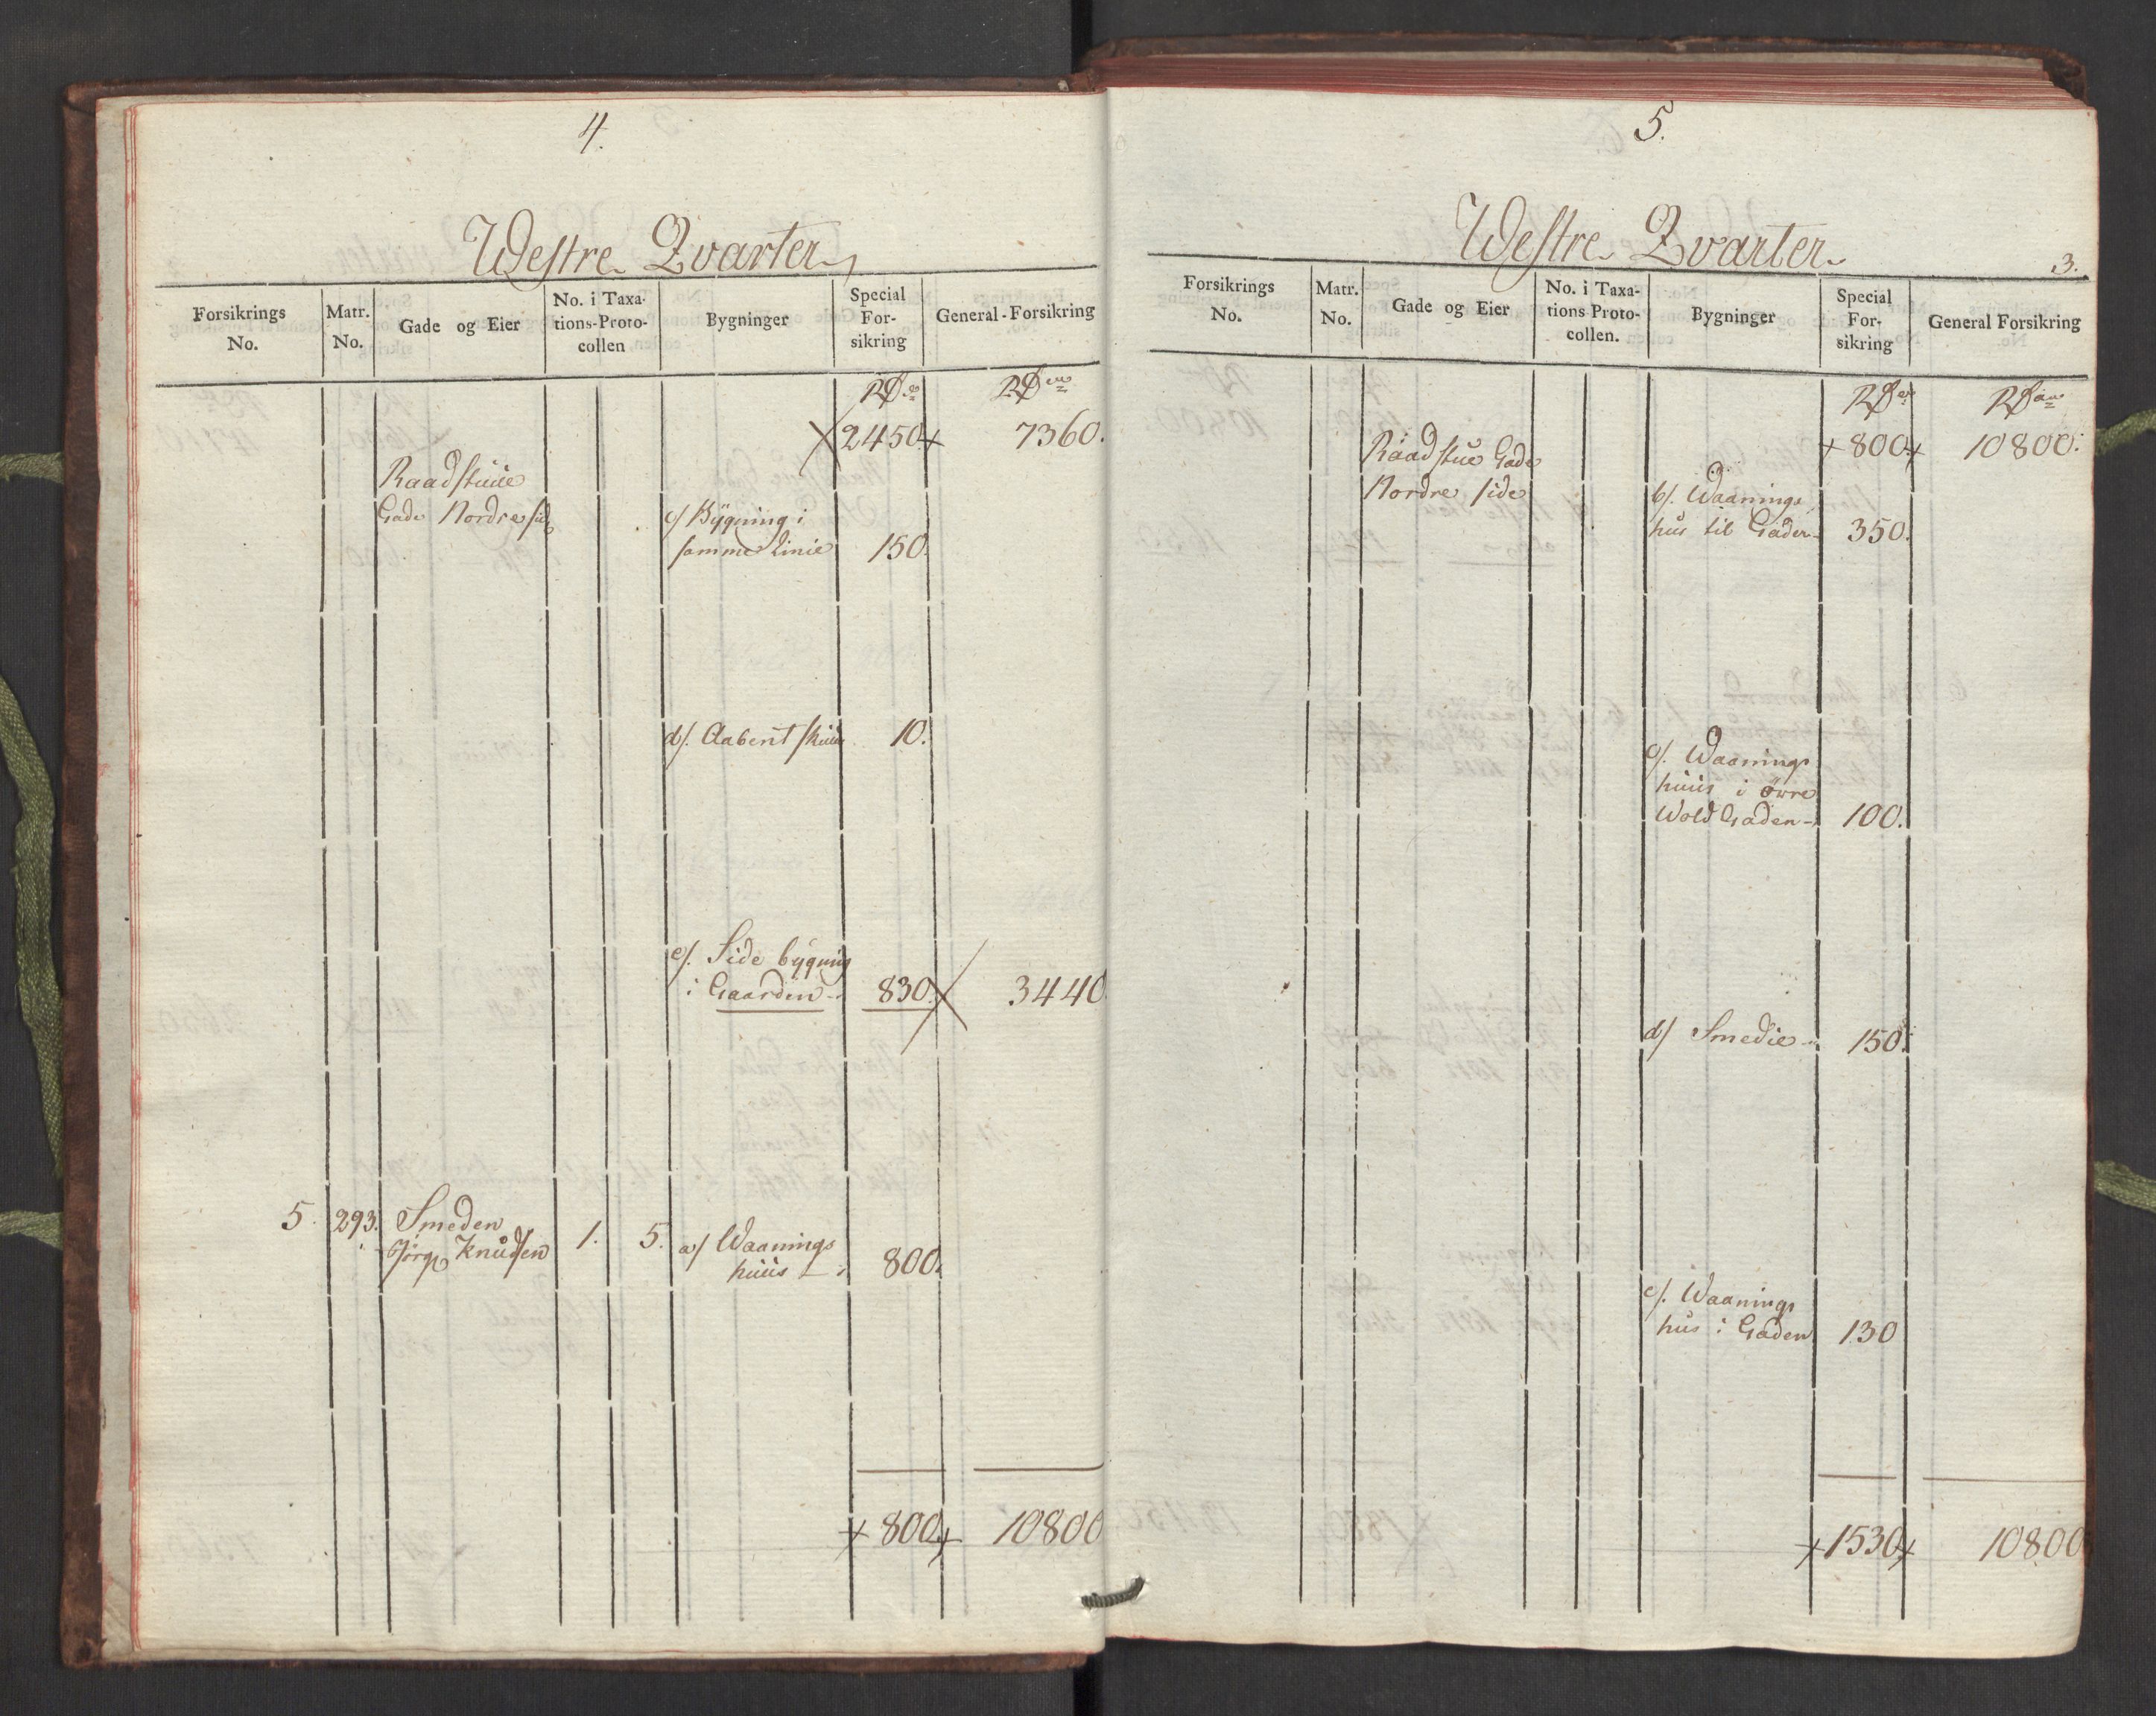 4.
Westre Qvarter
Forsikrings No.
Matr. No.
Gade og Eier
No. i Taxa-
tions-Proto-
collen
Bygninger
Special
For-
sikring
General-Forsikring
2450. 7360.
Raadstuue
Gade Nordre side
c/ Bÿgning i
samme Linie 150.
d/. Aabent skuur 10.
e/. Side bÿgning
i Gaarden 830. 3440.
5. 293. Smeden
Jørg. Knudsen 1. 5. a/ Waanings
huus 800.
800. 10800
5.
Westre Qvarter
3.
Forsikrings No.
Matr. No.
Gade og Eier
No. i Taxa-
tions Proto-
collen.
Bygninger
Special
For-
sikring
General Forsikring
800. 10800.
Raadstue Gade
Nordre side
b/. Waanings
hus til Gaden 350.
c/. Waanings
huus i øwre
Wold Gaden 100.
d/ Smedie 150.
e/. Waanings
hus i Gaden 130
1530 10800